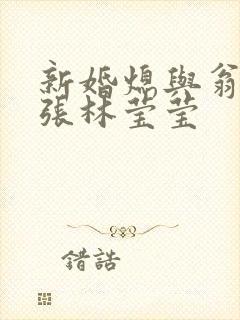 新婚熄與翁
張林莹莹
錯誥